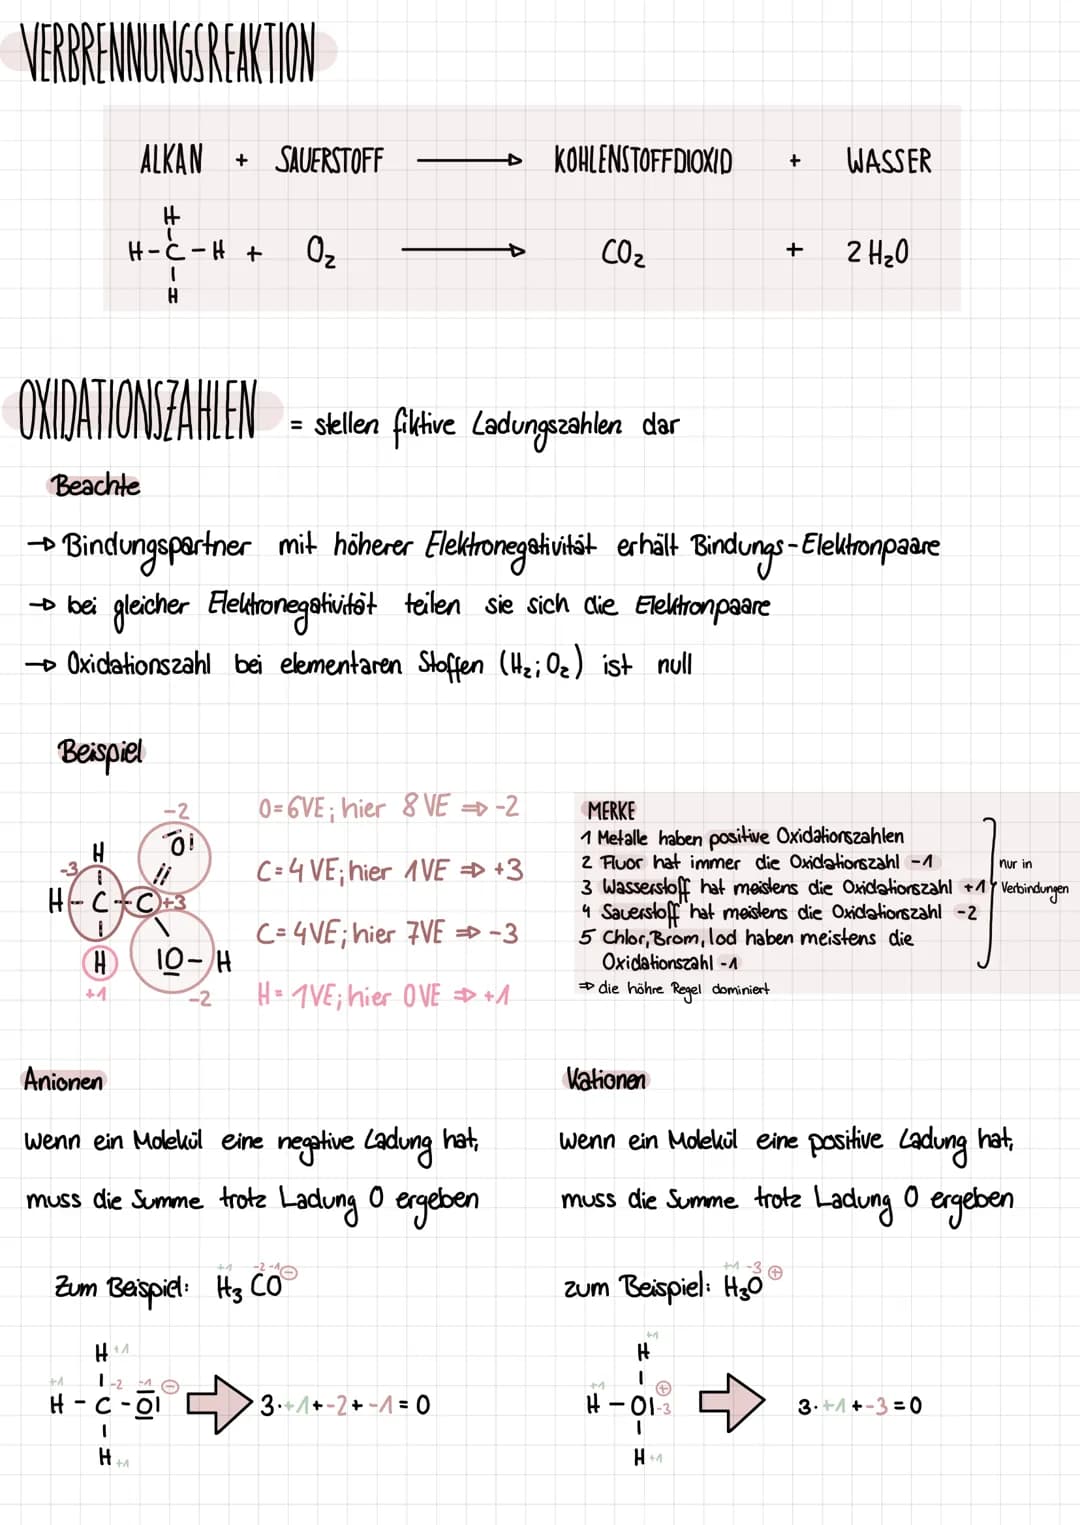 VERBRENNUNGSREAKTION
ALKAN + SAUERSTOFF → KOHLENSTOFFDIOXID + WASSER
H
H-C-H + O₂ → CO₂ + 2 H₂O
H
OXIDATIONSZAHLEN = stellen fiktive Ladungszahlen dar
Beachte
→ Bindungspartner mit höherer Elektronegativität erhält Bindungs-Elektronpaare
→ bei gleicher Elektronegativität teilen sie sich die Elektronpaare
→ Oxidationszahl bei elementaren Stoffen (H₂; O₂) ist null
Beispiel
-2
O
H
-3
H-C-C +3
H
O-H
+1
-2
O=6VE; hier 8 VE ⇒ -2
C=4 VE; hier 1VE ⇒ +3
C=4VE; hier 7VE ⇒ -3
H=1VE; hier 0VE ⇒ +1
MERKE
1 Metalle haben positive Oxidationszahlen
2 Fluor hat immer die Oxidationszahl -1
3 Wasserstoff hat meistens die Oxidationszahl +1
4 Sauerstoff hat meistens die Oxidationszahl -2
5 Chlor, Brom, Iod haben meistens die
Oxidationszahl -1
⇒ die höhre Regel dominiert
nur in
Verbindungen
Anionen
wenn ein Molekül eine negative Ladung hat,
muss die Summe trotz Ladung 0 ergeben
+1 -2 -1 ⊖
Zum Beispiel: H₃ CO
H +1
+1 -2 -1 ⊖
H - C - O
H +1
3·+1+-2+-1=0
Kationen
wenn ein Molekül eine positive Ladung hat,
muss die Summe trotz Ladung 0 ergeben
+1 -3 ⊕
zum Beispiel: H₃O
+1
H
+1 ⊕
H - O -3
H +1
3·+1+-3=0